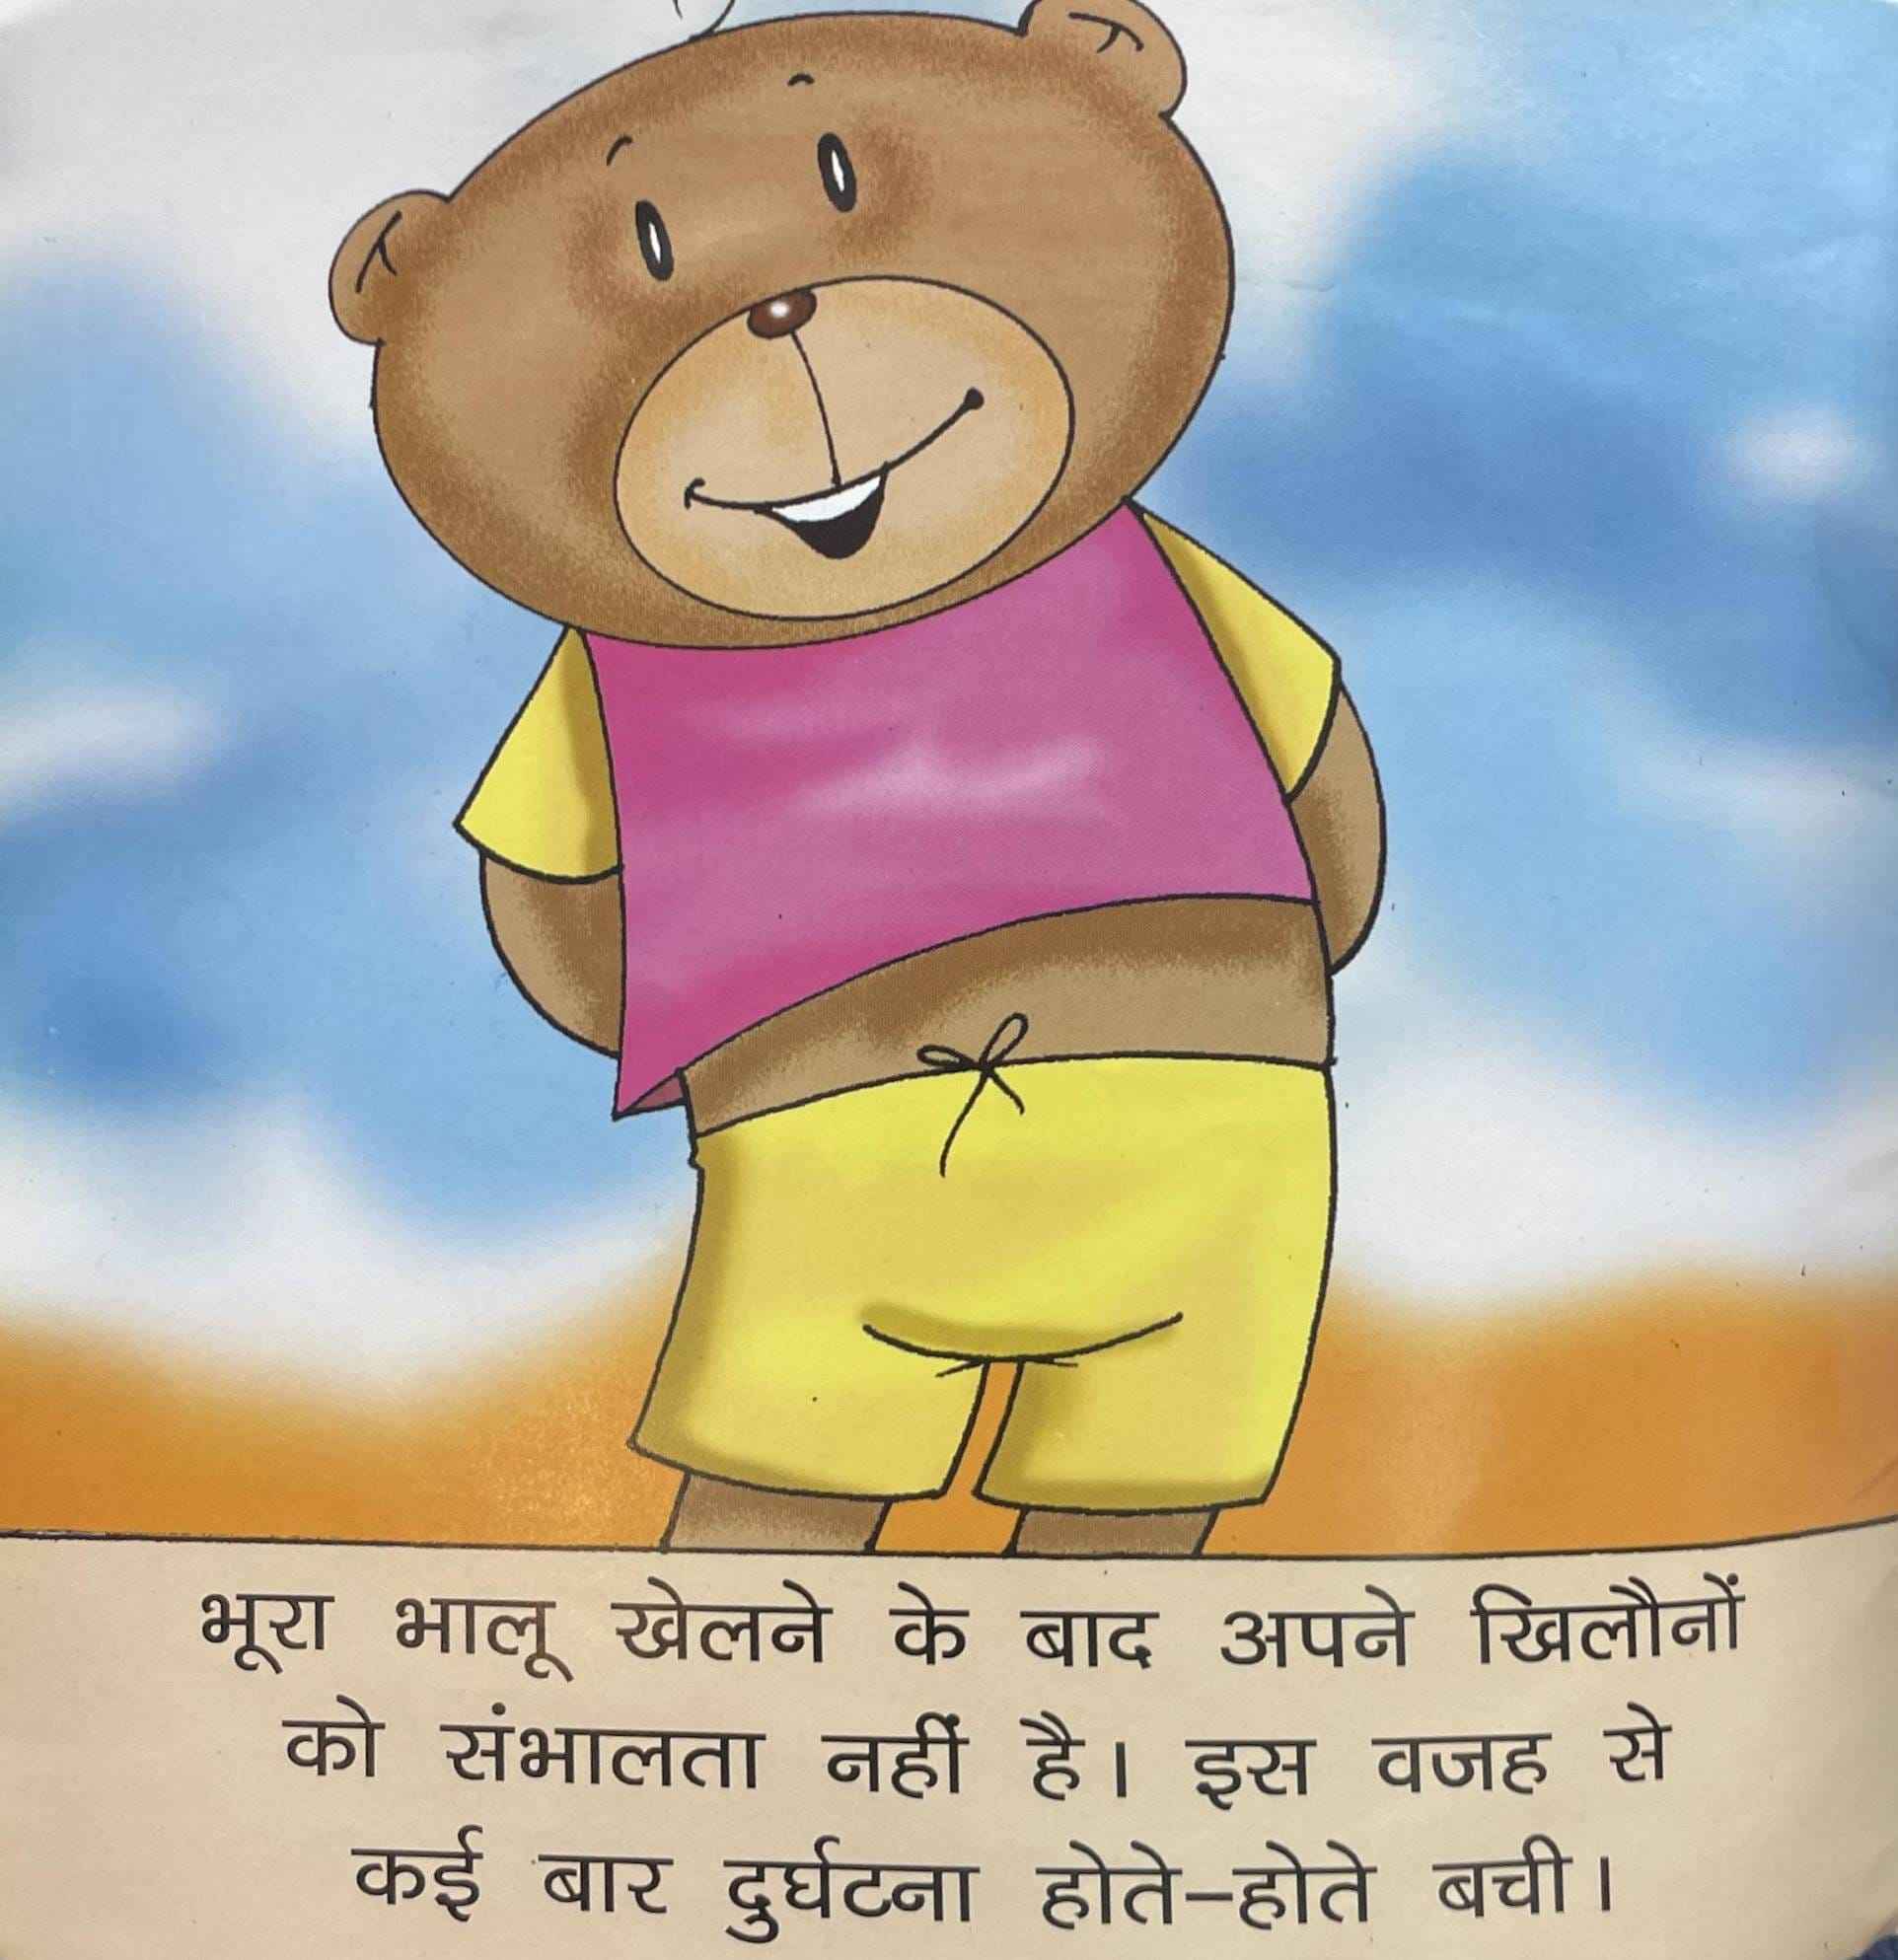 भूरा भालू खेलने के बाद अपने खिलौनों
को संभालता नहीं है। इस वजह से
कई बार दुर्घटना होते-होते बची।